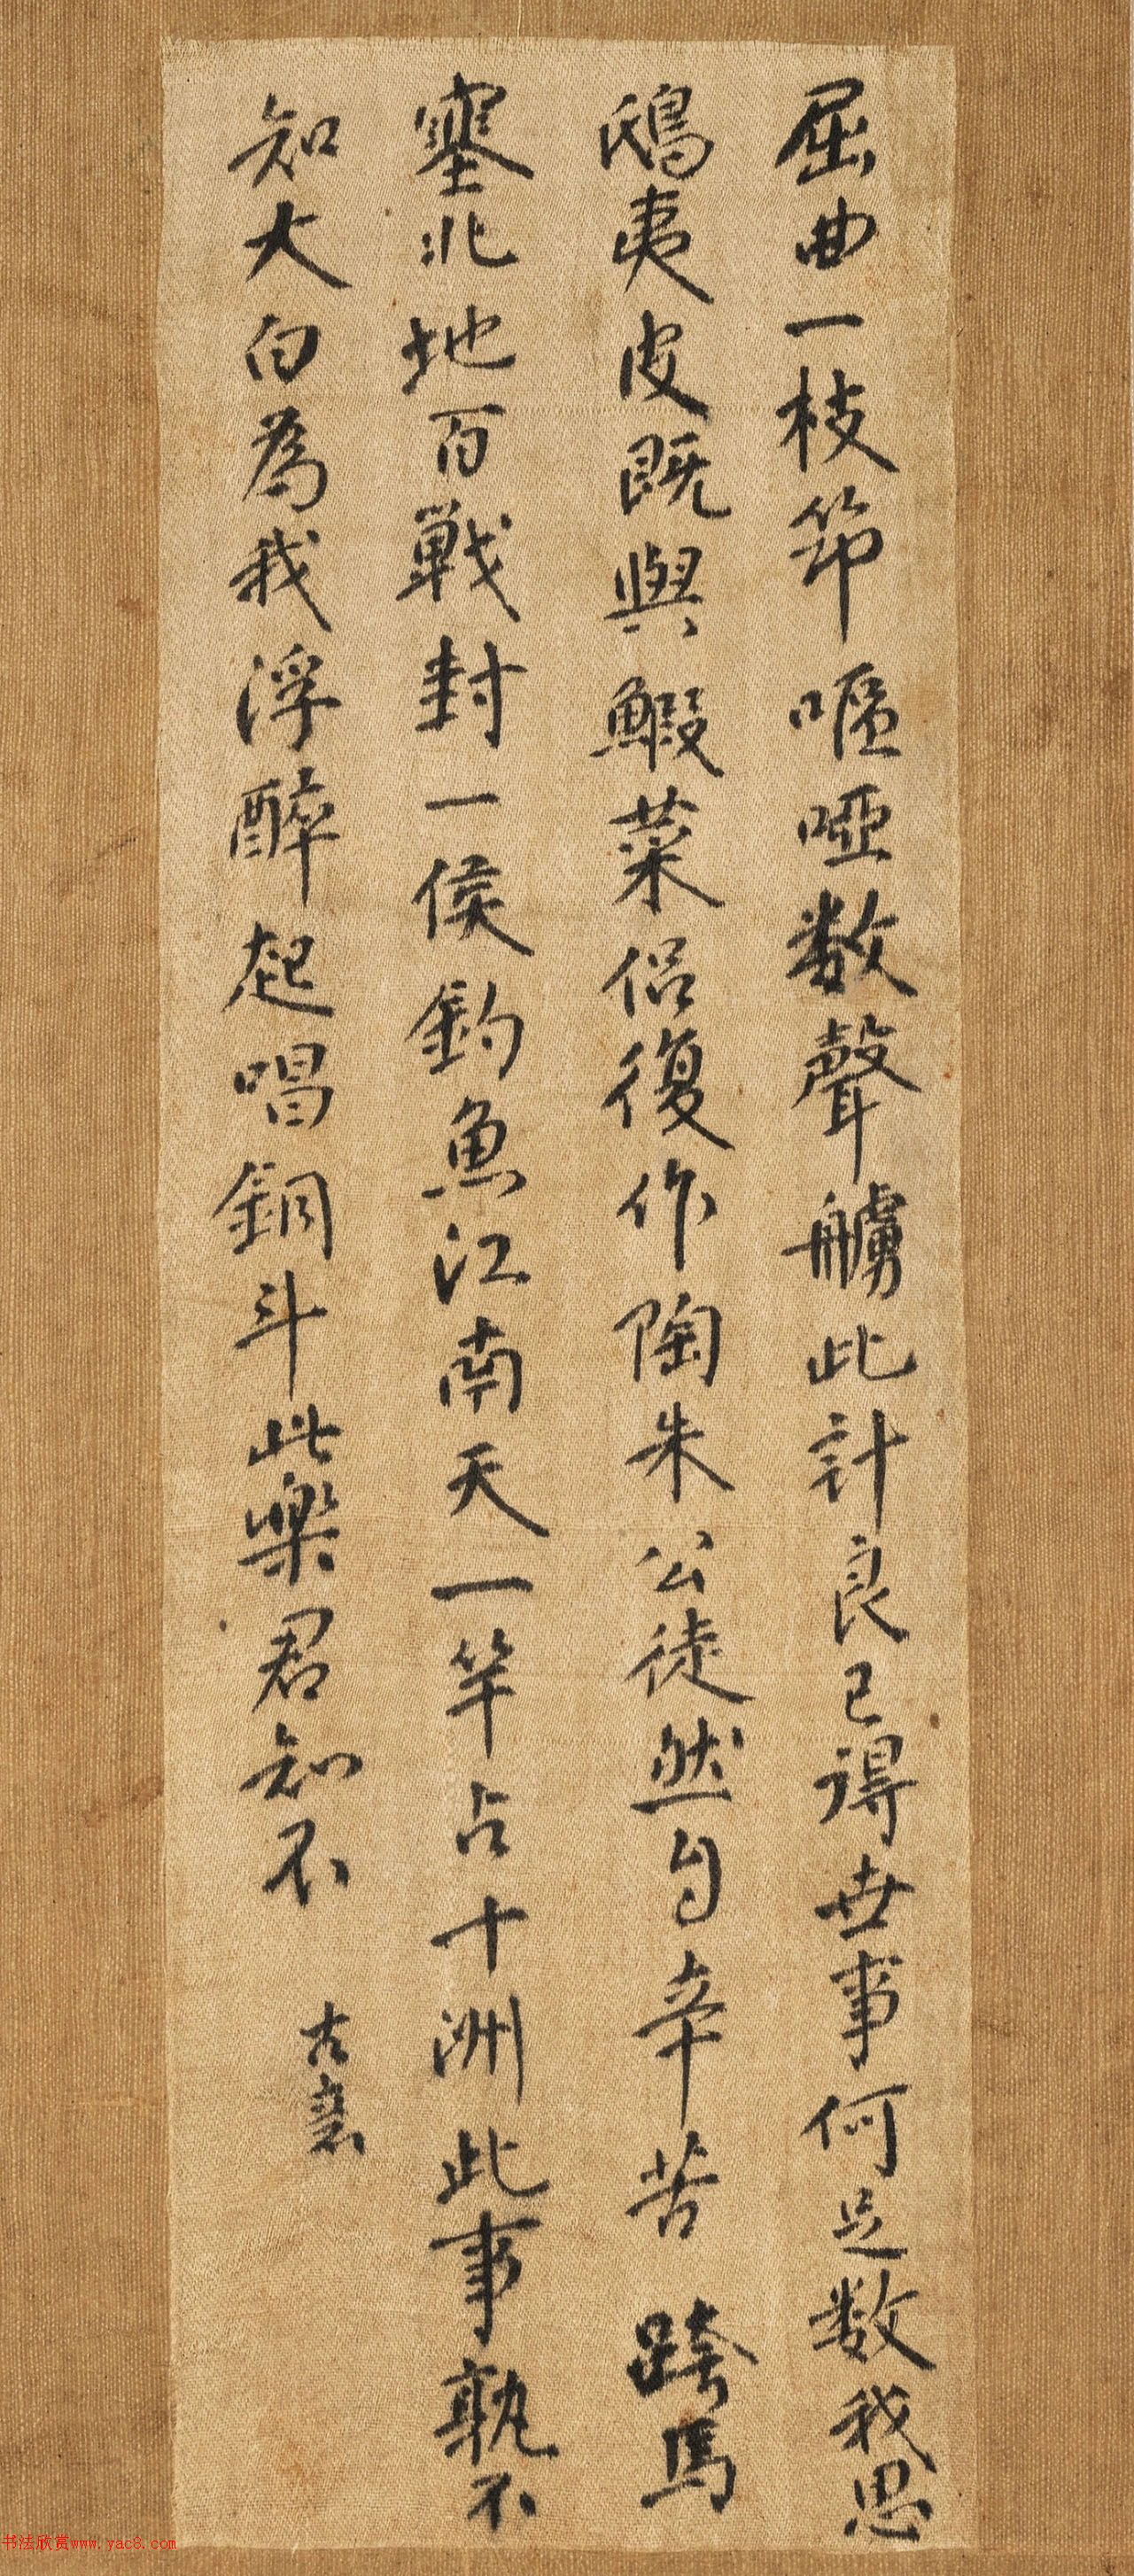 屈曲一枝笻嘔啞数聲艣此計良已得世事何足数我思
鴟夷皮既與鰕菜侣復作陶朱公徒然自辛苦 跨馬
塞北地百戰封一侯釣魚江南天一竿占十洲此事孰不
知大白為我浮醉起唱銅斗此樂君知不
古襄
书法欣赏www.yac8.com